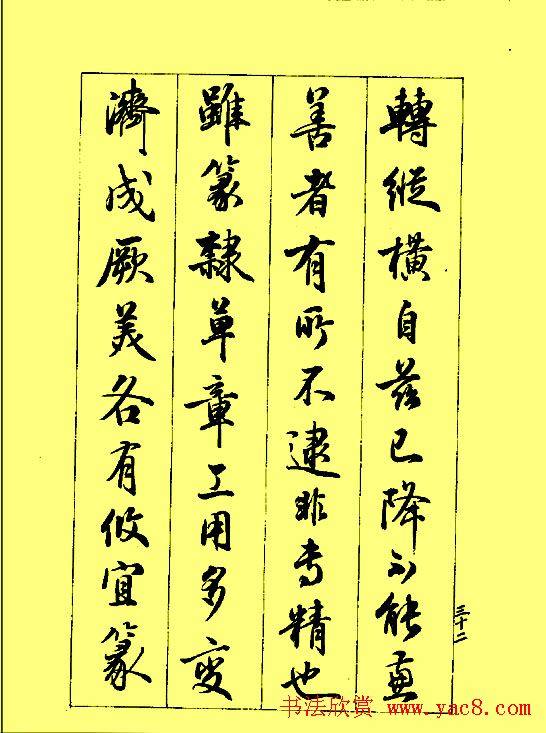 轉縱橫自茲已降不能兼
善者有所不逮非專精也
雖篆隸草章工用多變
濟成厥美各有攸宜篆
三十二
书法欣赏 www.yac8.com